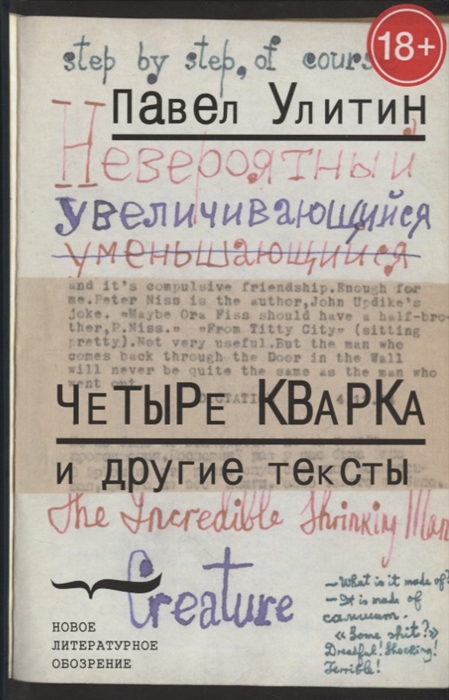 step by step, of cours
18+
Павел Улитин
Невероятный
увеличивающийся
уменьшающийся
and it's compulsive friendship.Enough for
me.Peter Niss is the author,John Updike's
joke. »Maybe Ora Fiss should have a half-bro-
ther,P.Niss.» »From Titty City» (sitting
pretty).Not very useful.But the man who
comes back through the Door in the Wall
will never be quite the same as the man who
went out
ЧЕТЫРЕ КВАРКА
и другие тексты
The Incredible Shrinking Man
Creature
НОВОЕ
ЛИТЕРАТУРНОЕ
ОБОЗРЕНИЕ
—What is it made of?
—It is made of
«Some shit?»
Dreadful! Shocking!
Terrible!